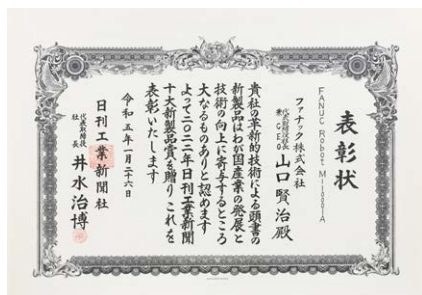 表彰状
FANUC Robot M-1000iA
ファナック株式会社
代表取締役社長
兼CEO
山口賢治殿
貴社の革新的技術による頭書の
新製品はわが国産業の発展と
技術の向上に寄与するところ
大なるものありと認めます
よって二〇二二年日刊工業新聞
十大新製品賞を贈りこれを
表彰いたします
令和五年一月二十六日
日刊工業新聞社
代表取締役
社長
井水治博